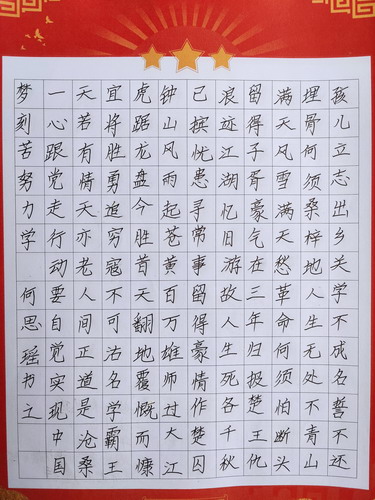 孩儿立志出乡关学不成名誓不还
埋骨何须桑梓地人生无处不青山
满天风雪满天愁革命何须怕断头
留得子胥豪气在三年归报楚王仇
浪迹江湖忆旧游故人生死各千秋
已摈忧患寻常事留得豪情作楚囚
钟山风雨起苍黄百万雄师过大江
虎踞龙盘今胜昔天翻地覆慨而慷
宜将胜勇追穷寇不可沽名学霸王
天若有情天亦老人间正道是沧桑
一心跟党走行动要自觉实现中国
梦刻苦努力学 何思瑶书立